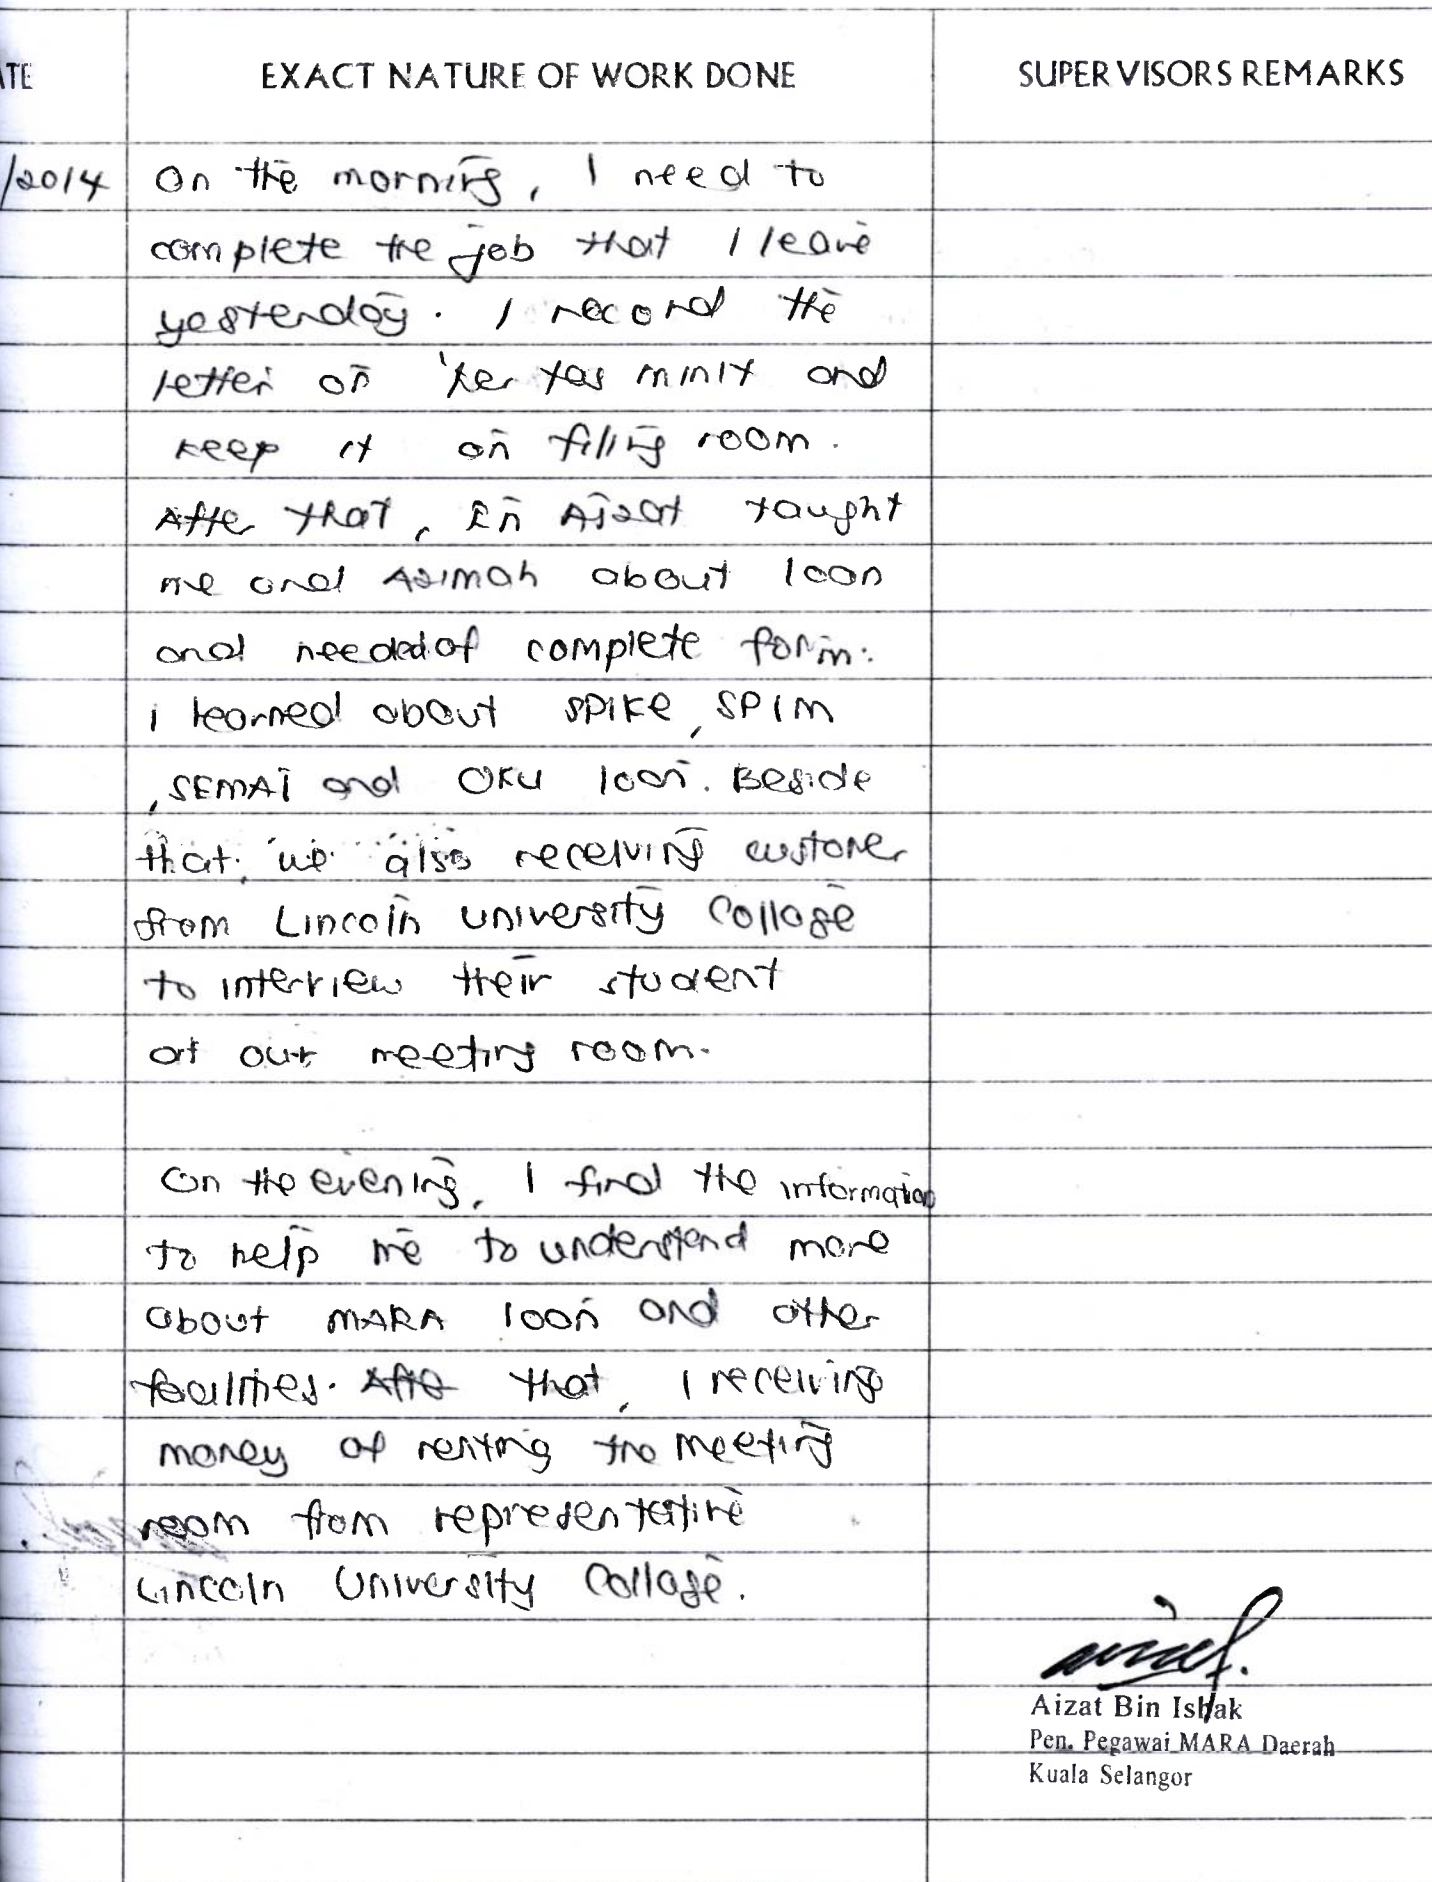 ATE EXACT NATURE OF WORK DONE SUPERVISORS REMARKS
/2014 On the morning, I need to
complete the job that I leave
yesterday. I record the
letter on 'kertas minit and
keep it on filling room.
After that, En Aizat taught
me and Azimah about loan
and needed of complete form.
i learned about SPIKE, SPIM
, SEMAI and OKU loan. Beside
that, we also receiving customer
from Lincoln University Collage
to interview their student
at our meeting room.
On the evening, I find the information
to help me to understand more
about MARA loan and other
facilities. After that, I receiving
money of renting the meeting
room from representative
Lincoln University Collage.
Aizat Bin Ishak
Pen. Pegawai MARA Daerah
Kuala Selangor